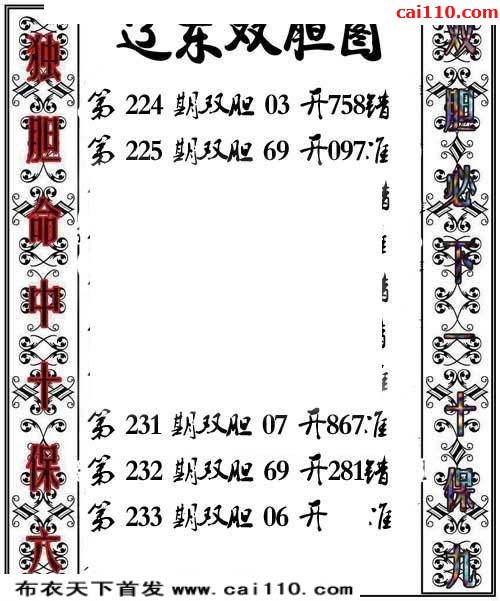 cai110.com
辽东双胆图
独胆命中十保六
第 224 期双胆 03 开758错
第 225 期双胆 69 开097准
第 231 期双胆 07 开867准
第 232 期双胆 69 开281错
第 233 期双胆 06 开 准
双胆必下一十保九
布衣天下首发 www.cai110.com